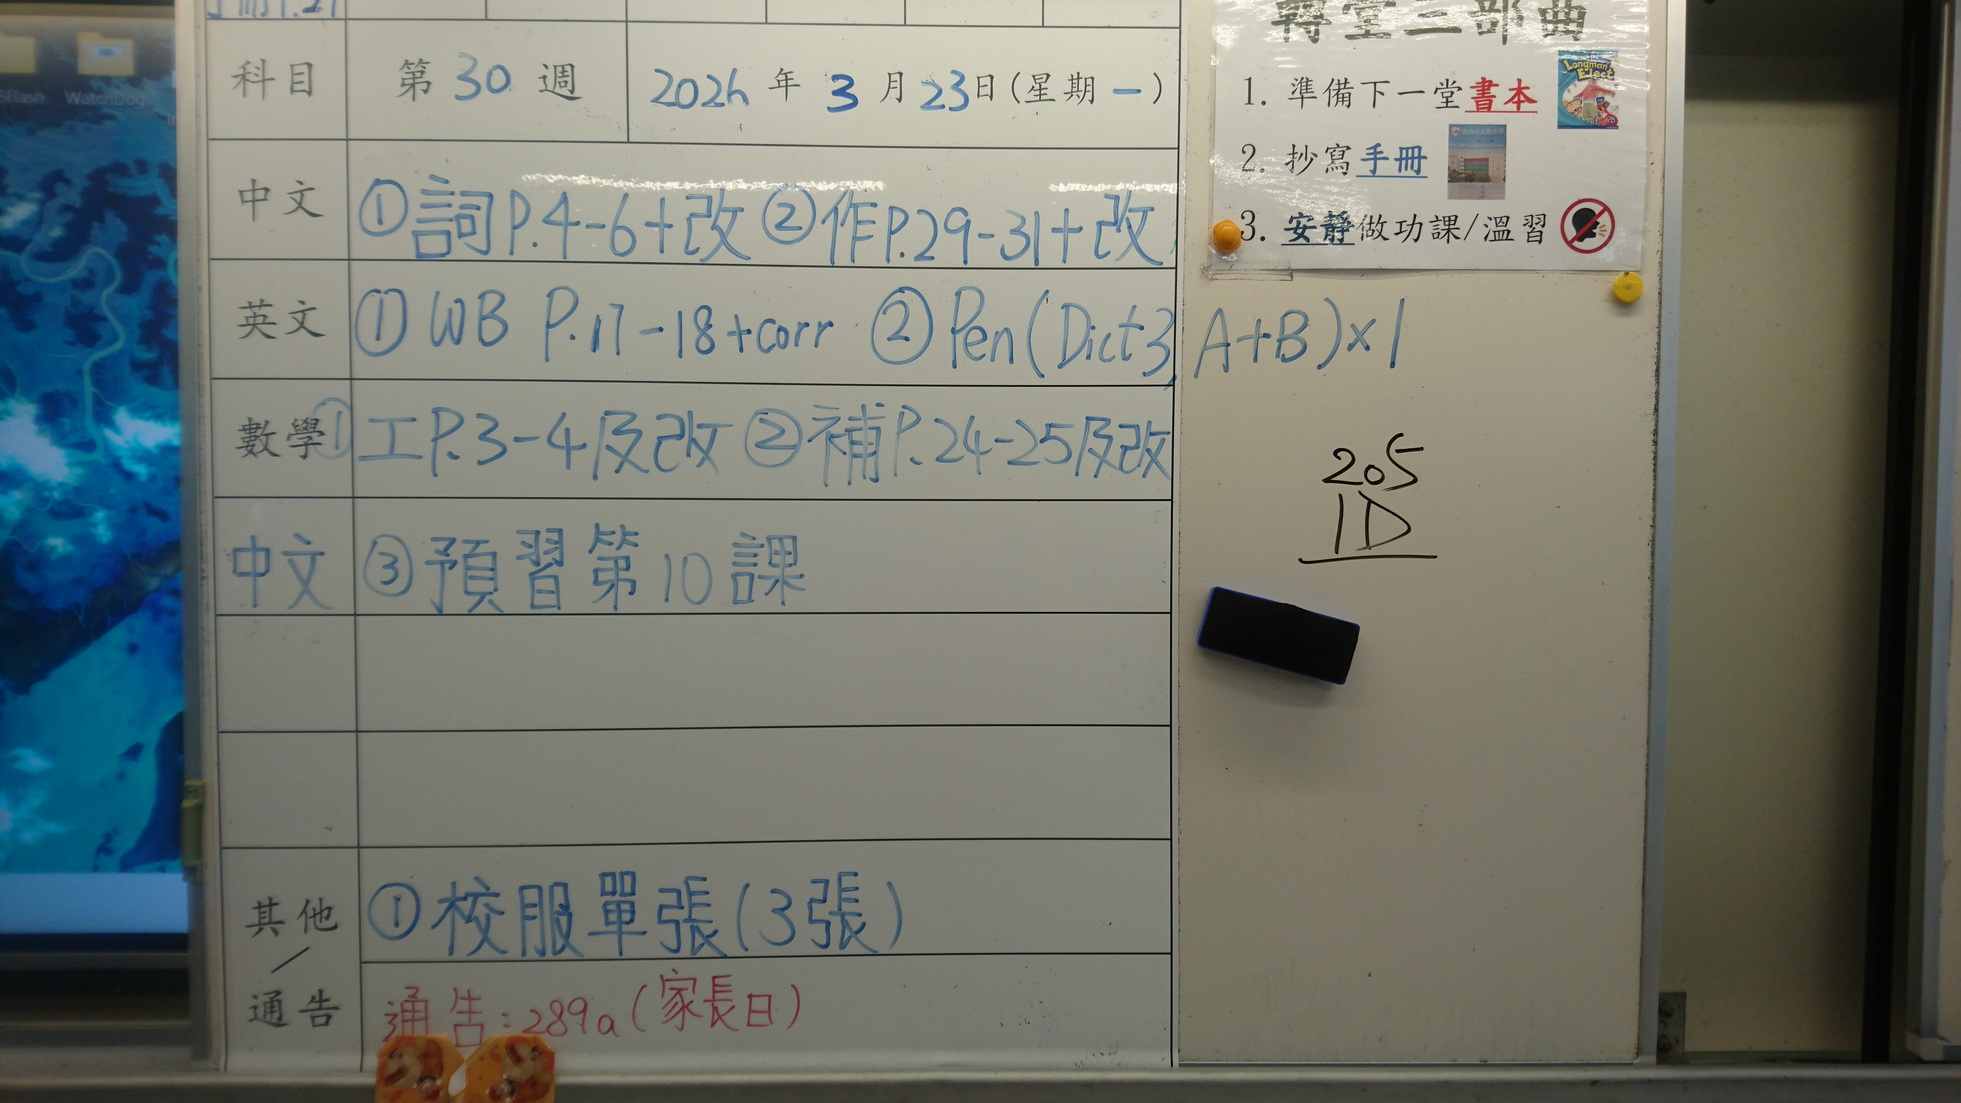 SFlash WatchDog
科目 第30週 2026年3月23日(星期一)
中文 ①詞P.4-6+改 ②作P.29-31+改
英文 ①WB P.17-18+corr ②Pen(Dict3, A+B)×1
數學 ①工P.3-4及改 ②補P.24-25及改
中文 ③預習第10課
其他/通告 ①校服單張(3張)
通告:289a(家長日)
轉堂三部曲
1. 準備下一堂書本
Longman Elect
2. 抄寫手冊
3. 安靜做功課/溫習
205
1D